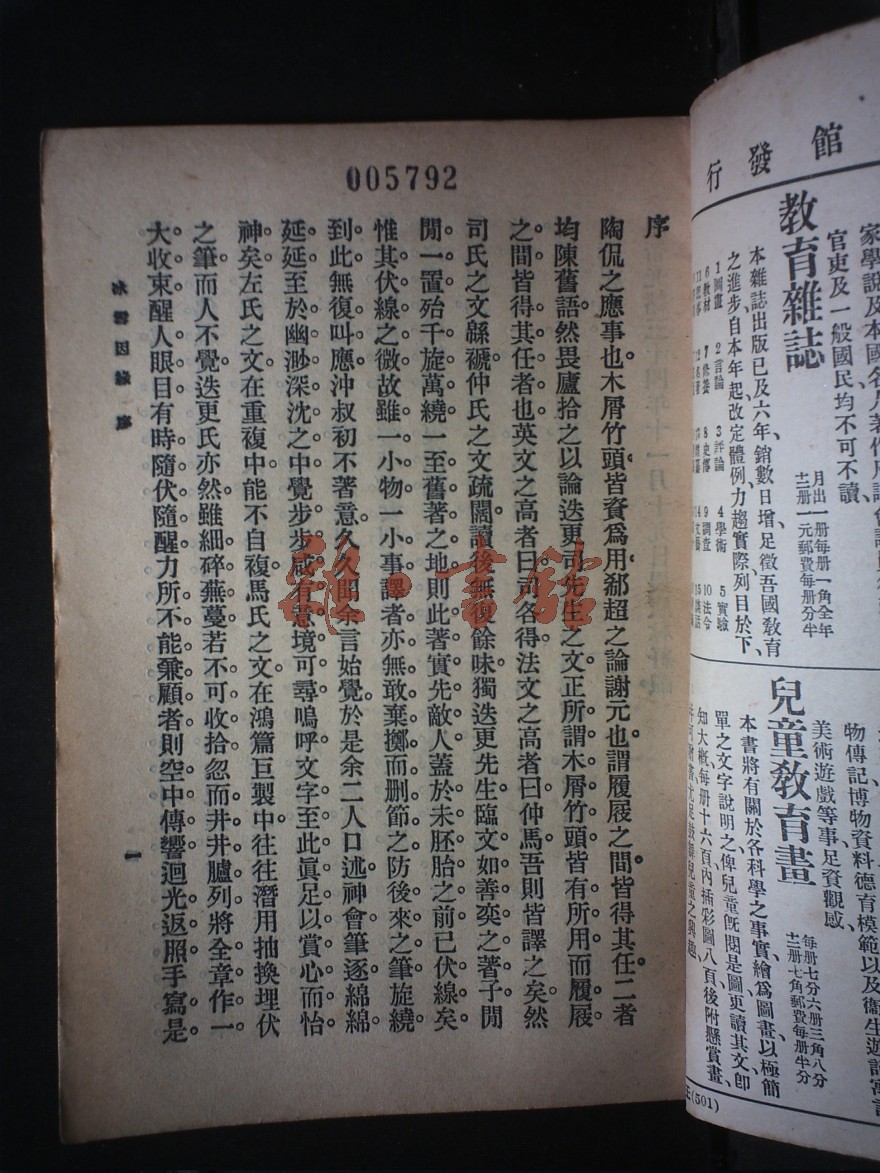 005792
序
陶侃之應事也木屑竹頭皆資爲用郗超之論謝元也謂履屐之間皆得其任二者
均陳舊語然畏廬拾之以論迭更司先生之文正所謂木屑竹頭皆有所用而履屐
之間皆得其任者也英文之高者曰司各得法文之高者曰仲馬吾則皆譯之矣然
司氏之文緜褫仲氏之文疏闊讀後無復餘味獨迭更先生臨文如善奕之著子閒
閒一置殆千旋萬繞一至舊著之地則此著實先敵人蓋於未胚胎之前已伏線矣
惟其伏線之微故雖一小物一小事譯者亦無敢棄擲而删節之防後來之筆旋繞
到此無復叫應沖叔初不著意久久聞余言始覺於是余二人口述神會筆逐綿綿
延延至於幽渺深沈之中覺步步咸有意境可尋嗚呼文字至此眞足以賞心而怡
神矣左氏之文在重複中能不自複馬氏之文在鴻篇巨製中往往潛用抽換埋伏
之筆而人不覺迭更氏亦然雖細碎蕪蔓若不可收拾忽而井井臚列將全章作一
大收束醒人眼目有時隨伏隨醒力所不能兼顧者則空中傳響迴光返照手寫是
冰雪因緣 序
一
館發行
官吏及一般國民均不可不讀
教育雜誌
月出一册每册一角全年
十二册一元郵費每册分半
本雜誌出版已及六年、銷數日增、足徵吾國教育
之進步、自本年起、改定體例、力趨實際、列目於下、
1圖畫 2言論 3評論 4學術 5實驗
6教材 8史傳 9調查 10法令
物傳記博物資料德育模範以及衛生遊
美術遊戲等事足資觀感、
兒童教育畫
每册七分六册三角八分
十二册七角郵費每册半分
本書將有關於各科學之事實、繪爲圖畫、以極簡
單之文字說明之、俾兒童旣閱是圖、更讀其文、卽
知大概、每册十六頁、內插彩圖八頁、後附懸賞畫、
(501)
雅書館